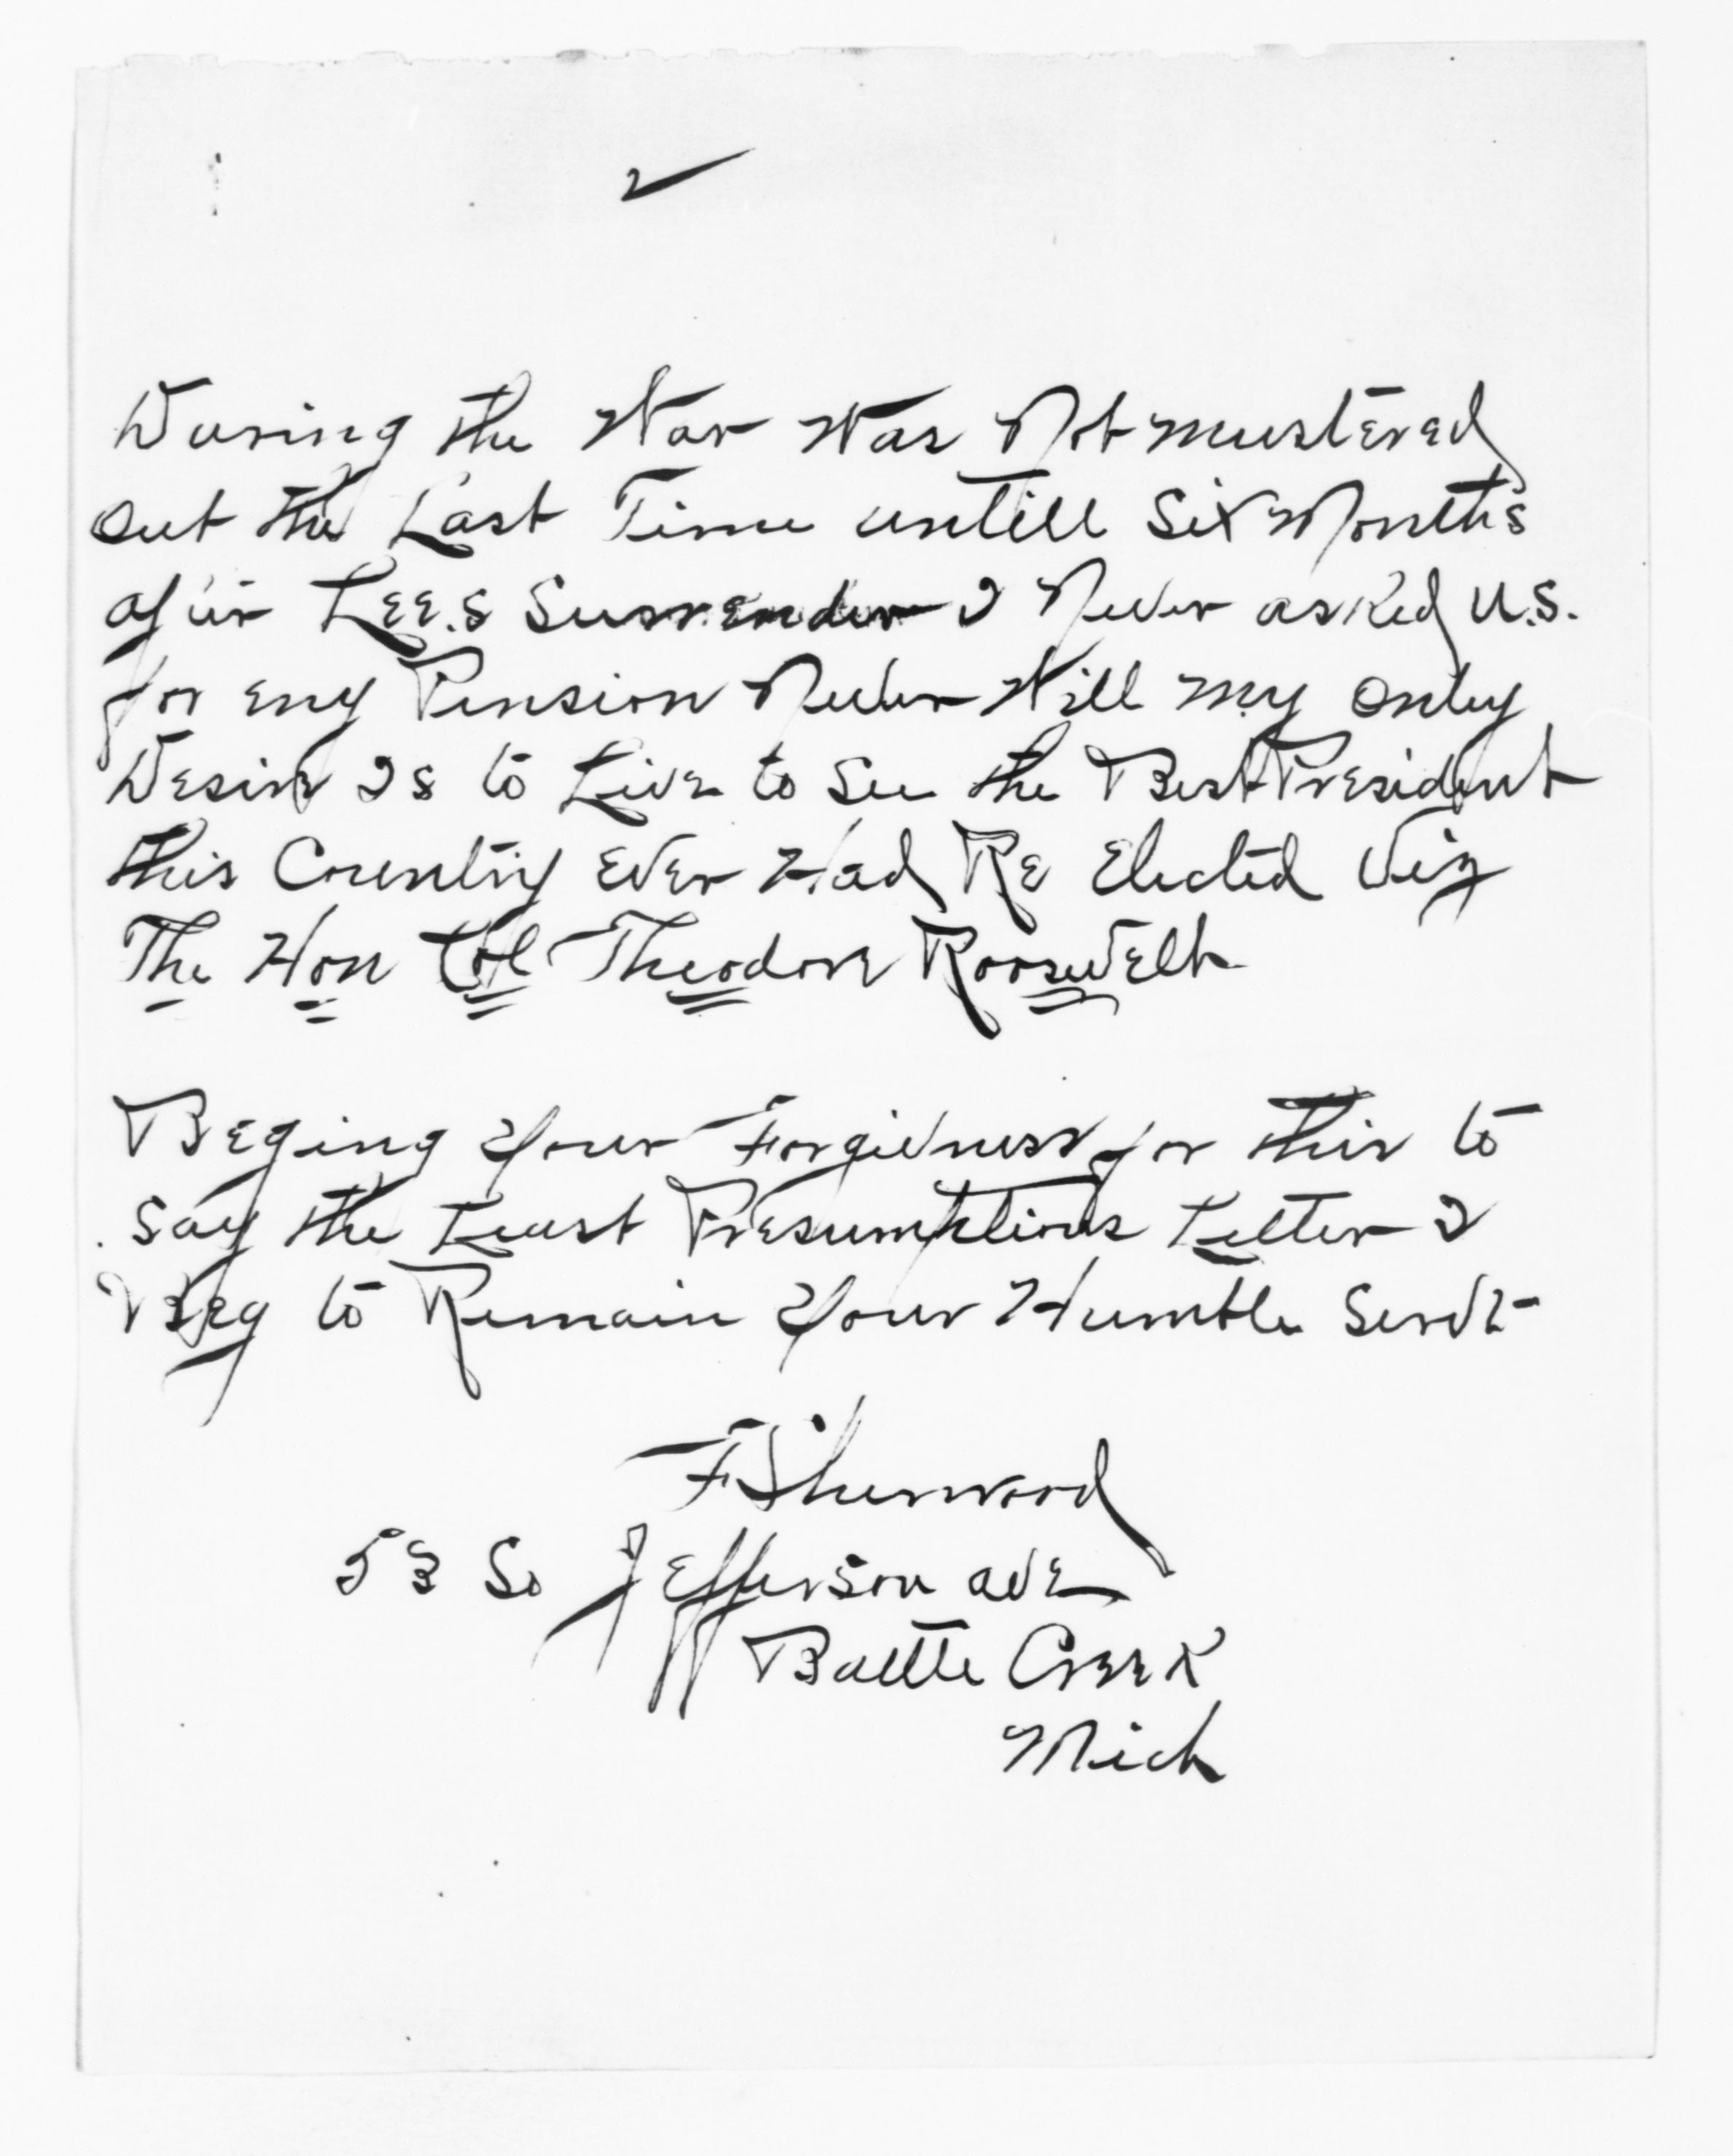 2
During the War Was Not mustered
out the Last Time untill Six Months
after Lee.s Surrender I Never asked U.S.
for eny Pension Never Will my only
Desire Is to Live to See the Best President
this Country Ever Had Re Elected Viz
The Hon Col Theodore Roosevelt
Beging Your Forgivness for this to
Say the Least Presumptious Letter I
Beg to Remain Your Humble Servt
F Sherwood
53 So Jefferson ave
Battle Creek
Mich